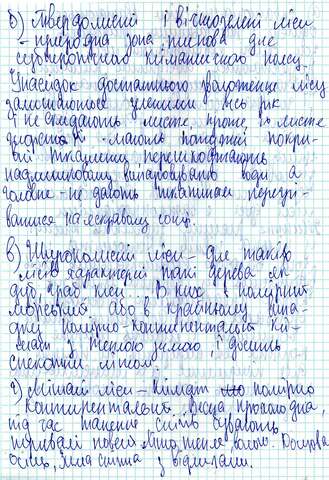 б) Твердолисті і вічнозелені ліси
- природна зона, типова для
субтропічного кліматичного поясу.
Унаслідок достатнього зволоження ліси
залишаються зеленими весь рік
і не скидають листя, проте, їх листя
жорстке і мають потужні покри-
ви тканини, перешкоджають
надмірному випаровуванню води, а
головне - не дають тканинам перегрі-
ватися на яскравому сонці.
в) Широколисті ліси - для таких
лісів характерні такі дерева як
дуб, граб, клен... В них і помірний
морський, або в крайньому випа-
дку помірно-континентальний клі-
мат з теплою зимою, і досить
спекотним літом.
г) Мішані ліси - клімат помірно
континентальний, весна прохолодна,
під час танення снігів бувають
повені. Літо тепле, вологе. Дощова
осінь, зима сніжна з відлигами.